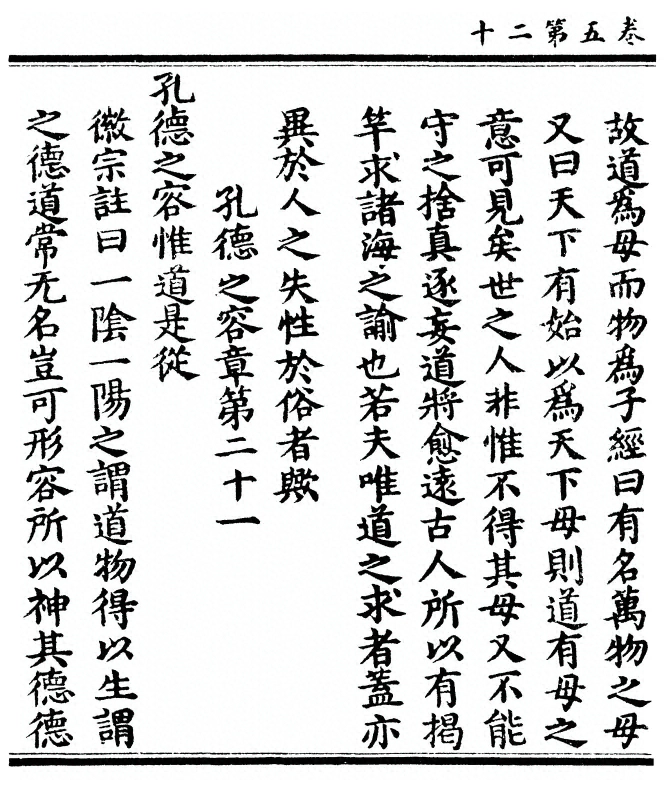 卷五第二十
故道爲母而物爲子經曰有名萬物之母
又曰天下有始以爲天下母則道有母之
意可見矣世之人非惟不得其母又不能
守之捨真逐妄道將愈遠古人所以有揭
竿求諸海之諭也若夫唯道之求者蓋亦
異於人之失性於俗者歟
孔德之容章第二十一
孔德之容惟道是從
徽宗註曰一陰一陽之謂道物得以生謂
之德道常无名豈可形容所以神其德德